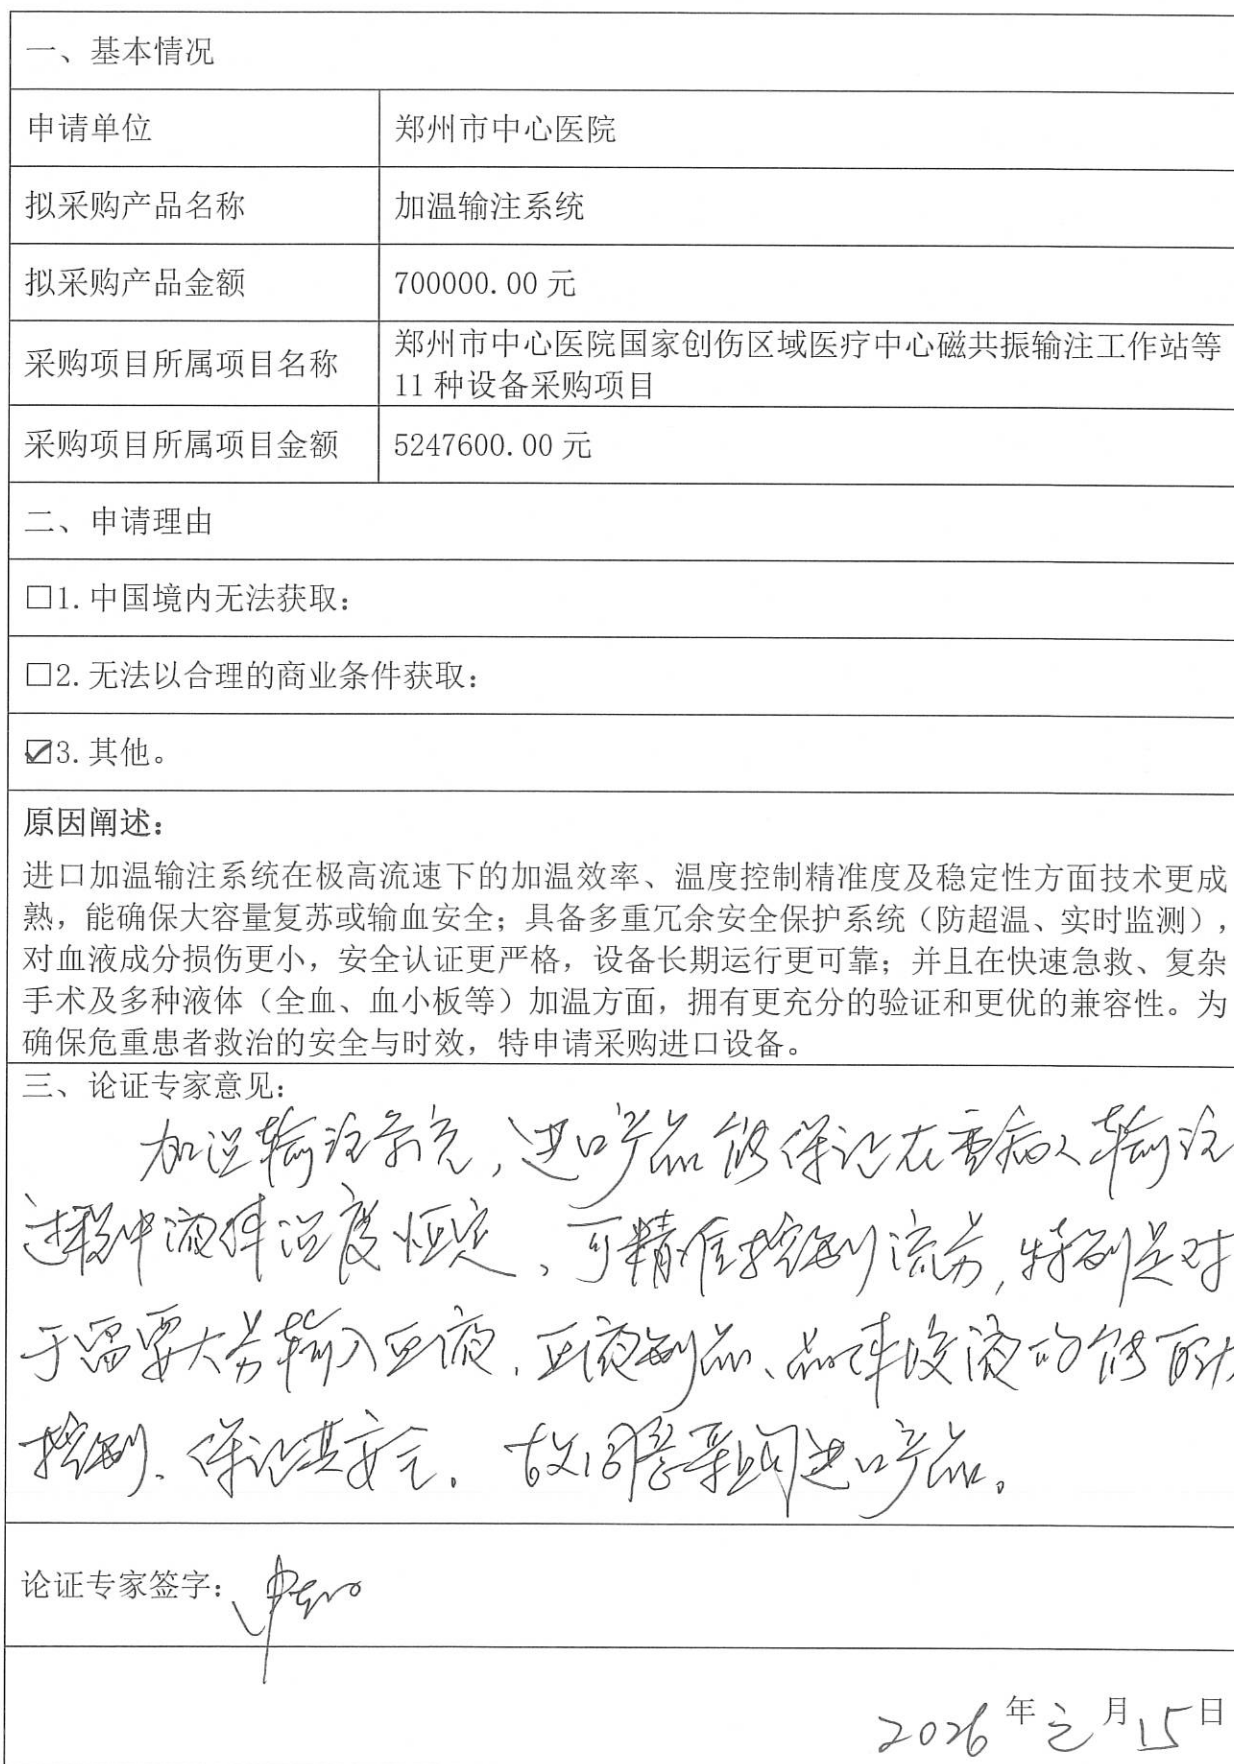 一、基本情况
申请单位 郑州市中心医院
拟采购产品名称 加温输注系统
拟采购产品金额 700000.00 元
采购项目所属项目名称 郑州市中心医院国家创伤区域医疗中心磁共振输注工作站等
11 种设备采购项目
采购项目所属项目金额 5247600.00 元
二、申请理由
□1.中国境内无法获取：
□2.无法以合理的商业条件获取：
☑3.其他。
原因阐述：
进口加温输注系统在极高流速下的加温效率、温度控制精准度及稳定性方面技术更成
熟，能确保大容量复苏或输血安全；具备多重冗余安全保护系统（防超温、实时监测），
对血液成分损伤更小，安全认证更严格，设备长期运行更可靠；并且在快速急救、复杂
手术及多种液体（全血、血小板等）加温方面，拥有更充分的验证和更优的兼容性。为
确保危重患者救治的安全与时效，特申请采购进口设备。
三、论证专家意见：
加温输注系统，进口产品能保证在重病人输注
过程中液体温度恒定、可精准控制流量，特别是对
于需要大量输入血液、血液制品、晶体胶液均能
控制、保证其安全。故同意采购进口产品。
论证专家签字：
2026 年 元 月 15 日